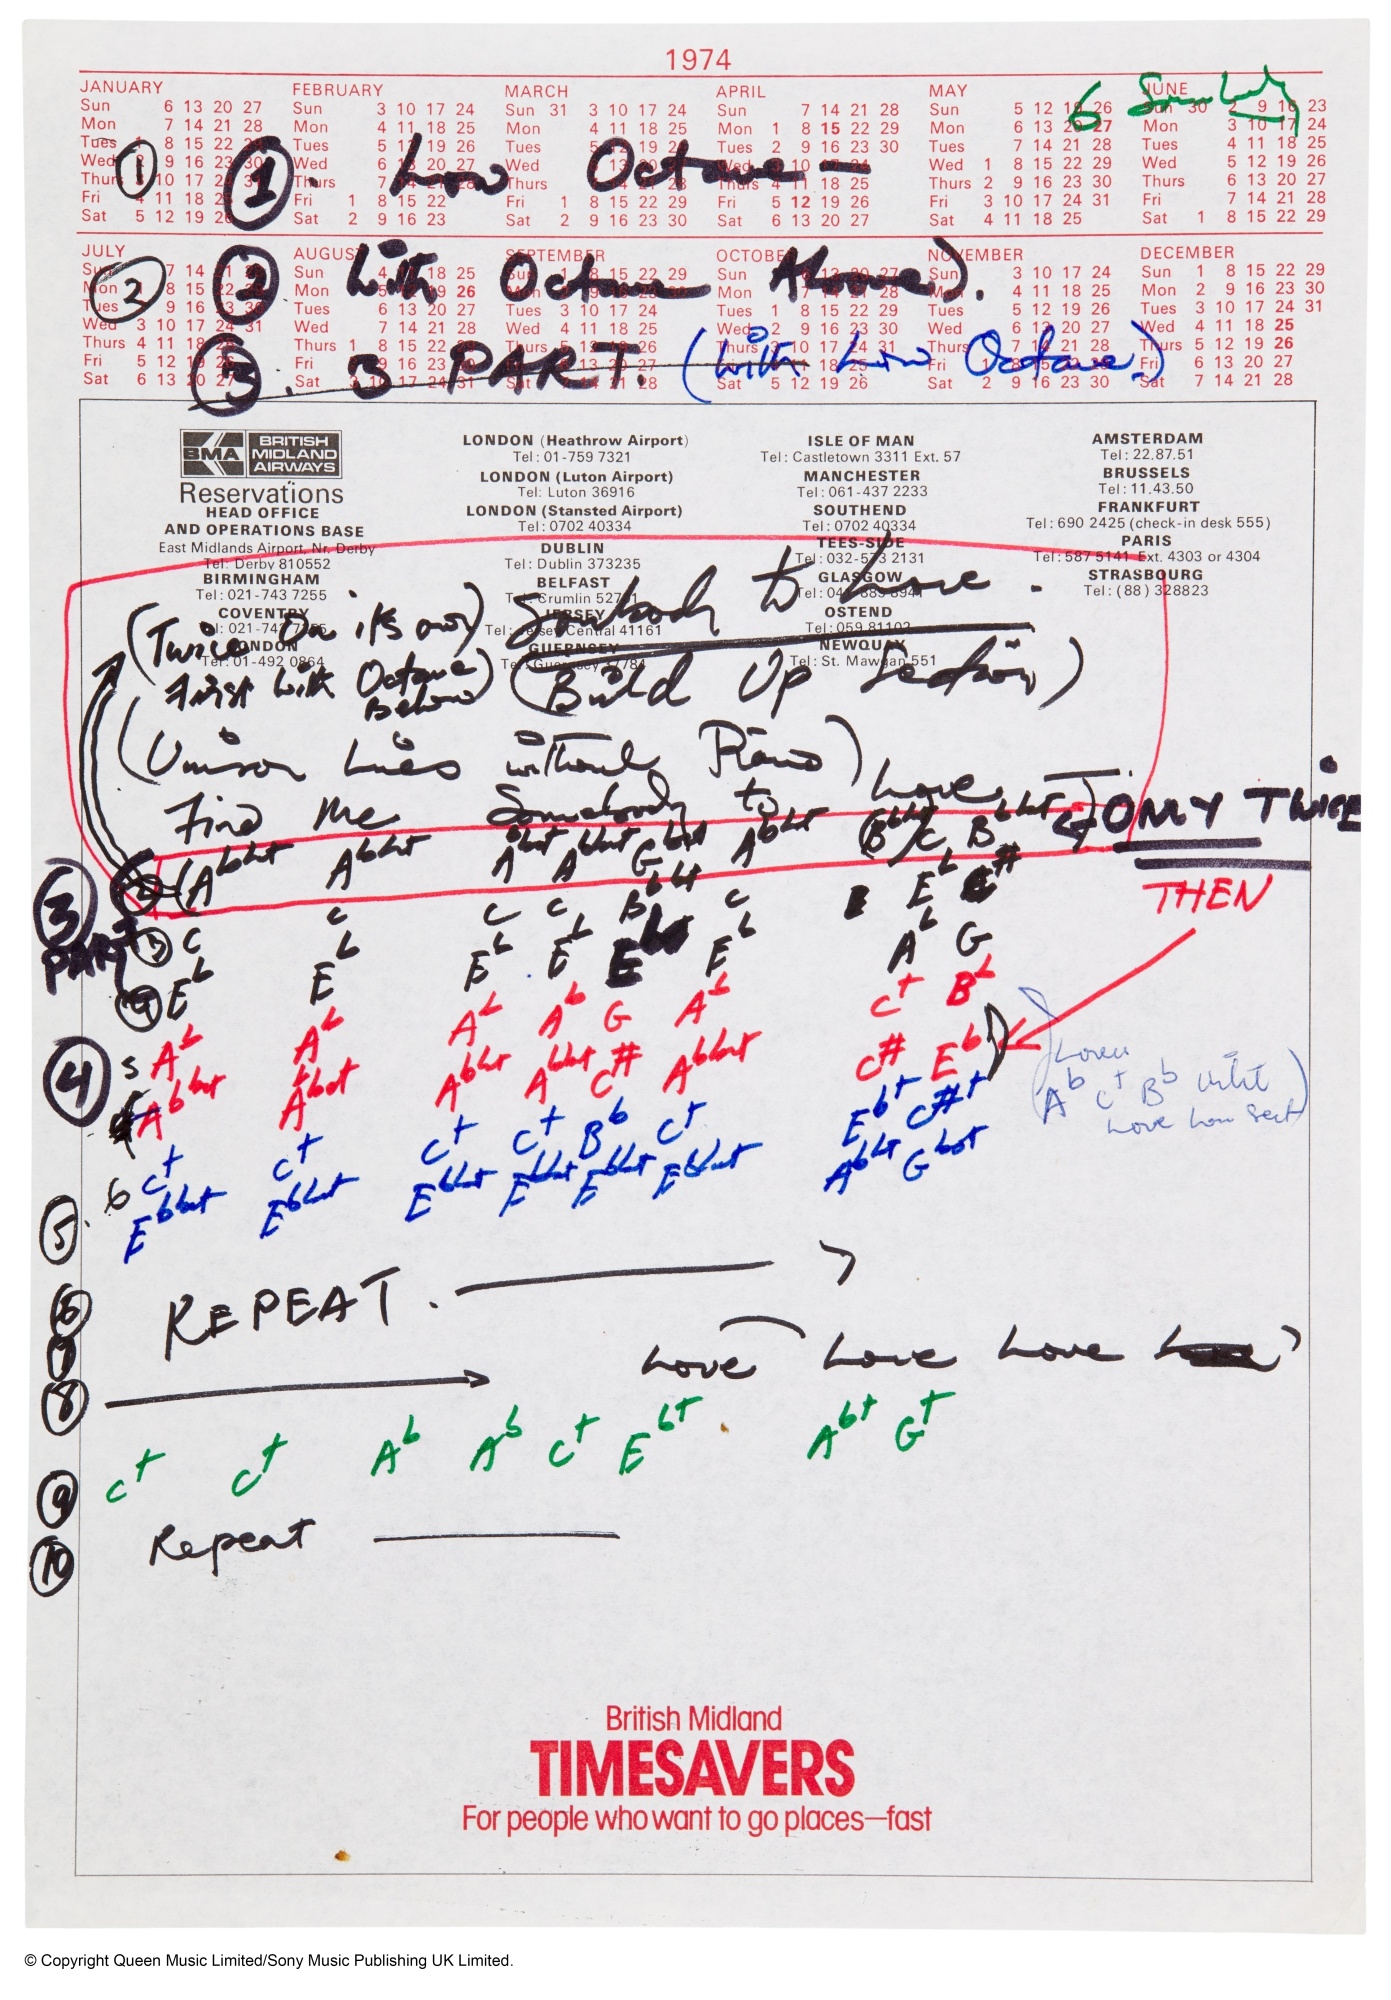 1974
JANUARY FEBRUARY MARCH APRIL MAY JUNE
6
Sun 6 13 20 27 Sun 3 10 17 24 Sun 31 3 10 17 24 Sun 7 14 21 28 Sun 5 12 19 26 Sun 30 2 9 16 23
Mon 7 14 21 28 Mon 4 11 18 25 Mon 4 11 18 25 Mon 1 8 15 22 29 Mon 6 13 20 27 Mon 3 10 17 24
Tues 1 8 15 22 Tues 5 12 19 26 Tues 5 12 19 26 Tues 2 9 16 23 30 Tues 7 14 21 28 Tues 4 11 18 25
Wed 9 16 23 30 Wed 6 13 20 27 Wed 13 Wed 10 Wed 1 8 15 22 29 Wed 5 12 19 26
Thurs 10 17 Thurs 7 28 Thurs Thurs 4 11 18 25 Thurs 2 9 16 23 30 Thurs 6 13 20 27
Fri 11 18 Fri 1 8 15 22 Fri 1 8 15 22 29 Fri 5 12 19 26 Fri 3 10 17 24 31 Fri 7 14 21 28
Sat 5 12 19 26 Sat 2 9 16 23 Sat 2 9 16 23 30 Sat 6 13 20 27 Sat 4 11 18 25 Sat 1 8 15 22 29
1 1. Low Octave —
JULY AUGUST SEPTEMBER OCTOBER NOVEMBER DECEMBER
Sun 7 14 Sun 4 18 25 Sun 1 8 15 22 29 Sun 6 13 20 27 Sun 3 10 17 24 Sun 1 8 15 22 29
Mon 1 8 15 22 Mon 5 19 26 Mon Mon 7 14 21 28 Mon 4 11 18 25 Mon 2 9 16 23 30
Tues 9 16 Tues 6 13 20 27 Tues 3 10 17 24 Tues 1 8 15 22 29 Tues 5 12 19 26 Tues 3 10 17 24 31
Wed 3 10 17 24 31 Wed 7 14 21 28 Wed 4 11 18 25 Wed 2 9 16 23 30 Wed 6 13 20 27 Wed 4 11 18 25
Thurs 4 11 18 Thurs 1 8 15 22 Thurs 5 26 Thurs 3 10 17 24 31 Thurs 7 14 21 28 Thurs 5 12 19 26
Fri 5 12 Fri 9 16 23 Fri 27 Fri 18 25 Fri 1 8 Fri 6 13 20 27
Sat 6 13 20 27 Sat 3 10 17 24 31 Sat 21 28 Sat 5 12 19 26 Sat 2 9 16 23 30 Sat 7 14 21 28
2 2 With Octave Above).
3. 3 PART. (With Low Octave.)
BMA BRITISH MIDLAND AIRWAYS
Reservations
HEAD OFFICE
AND OPERATIONS BASE
East Midlands Airport, Nr. Derby
Tel: Derby 810552
BIRMINGHAM
Tel: 021-743 7255
COVENTRY
Tel: 021-743 7255
LONDON
Tel: 01-492 0864
LONDON (Heathrow Airport)
Tel: 01-759 7321
LONDON (Luton Airport)
Tel: Luton 36916
LONDON (Stansted Airport)
Tel: 0702 40334
DUBLIN
Tel: Dublin 373235
BELFAST
Tel: Crumlin
JERSEY
Tel: Jersey Central 41161
GUERNSEY
Tel: Guernsey 37784
ISLE OF MAN
Tel: Castletown 3311 Ext. 57
MANCHESTER
Tel: 061-437 2233
SOUTHEND
Tel: 0702 40334
TEES-SIDE
Tel: 032-573 2131
GLASGOW
Tel: 041
OSTEND
Tel: 059 81102
NEWQUAY
Tel: St. Mawgan 551
AMSTERDAM
Tel: 22.87.51
BRUSSELS
Tel: 11.43.50
FRANKFURT
Tel: 690 2425 (check-in desk 555)
PARIS
Tel: 587 5141 Ext. 4303 or 4304
STRASBOURG
Tel: (88) 328823
(Twice On it's own) Somebody to Love.
First with Octave Below) (Build Up Section)
(Unison Lines without Piano)
Find Me Somebody to Love
ONLY TWICE
(Abbot Abbot Abbot Abbot Gbot Abbot (Bbbot C Bbbot)
THEN
3 PART 3 C C C C Bbbot C Eb C#
4 Eb Eb Eb Eb Eb Eb Ab G
4 5 Ab Ab Ab Ab G Ab C+ Bb
Abbot Abbot Abbot Abbot C# Abbot C# Eb
Ab C+ Bb
Love
6 C+ C+ C+ C+ Bb C+ Eb+ C#+
5. Ebbot Ebbot Ebbot Ebbot Ebbot Ebbot Abbot Gbot
6 REPEAT.
7 Love Love Love
8
C+ C+ Ab Ab C+ Eb+ Ab+ G+
9
Repeat
10
British Midland
TIMESAVERS
For people who want to go places—fast
© Copyright Queen Music Limited/Sony Music Publishing UK Limited.